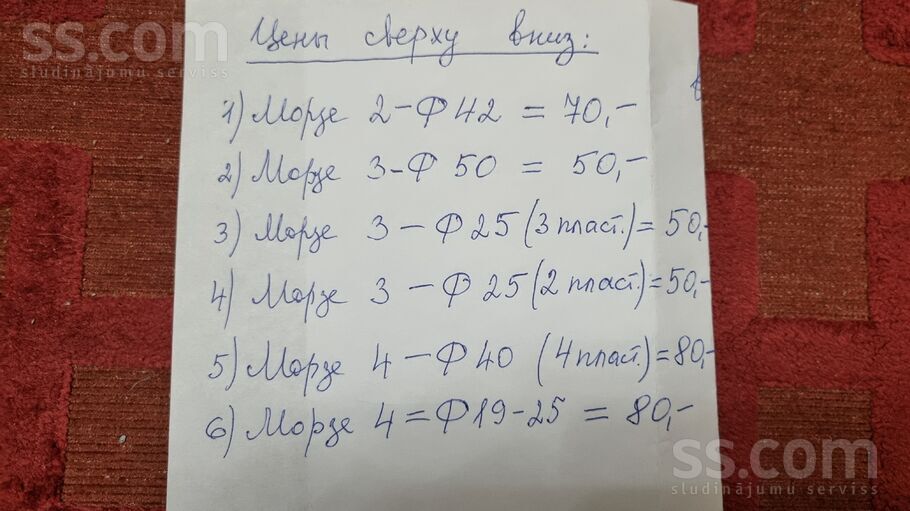 ss.com
studinājumu serviss
Цены сверху вниз:
1) Морзе 2-Ф42 = 70,-
2) Морзе 3-Ф 50 = 50,-
3) Морзе 3 - Ф25 (3 пласт.) = 50,-
4) Морзе 3 - Ф 25 (2 пласт.) = 50,-
5) Морзе 4 - Ф 40 (4 пласт.) = 80,-
6) Морзе 4 = Ф19-25 = 80,-
ss.com
sludinājumu serviss